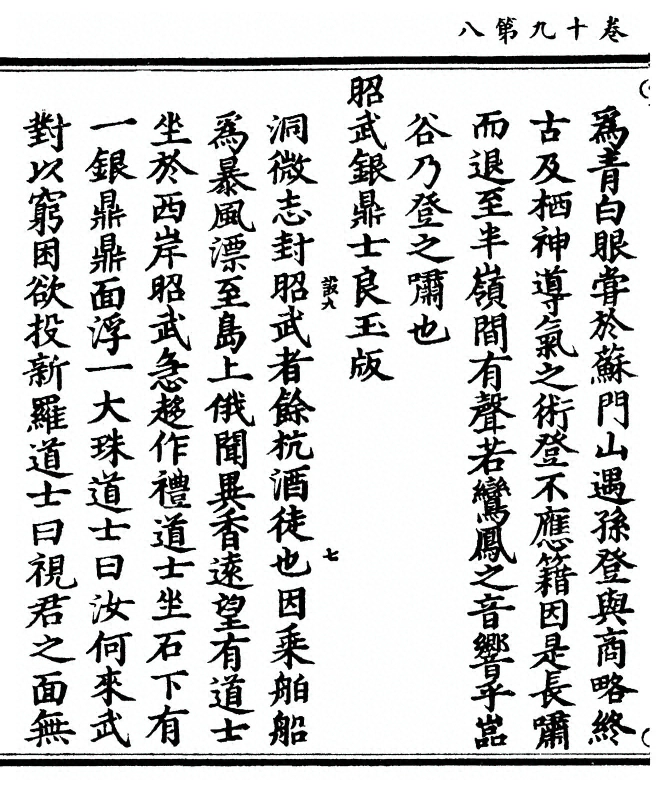 卷十九第八
爲青白眼嘗於蘇門山遇孫登與商略終
古及栖神導氣之術登不應籍因是長嘯
而退至半嶺間有聲若鸞鳳之音響乎嵓
谷乃登之嘯也
昭武銀鼎士良玉版
設九
洞微志封昭武者餘杭酒徒也因乗舶船
七
爲暴風漂至島上俄聞異香遠望有道士
坐於西岸昭武急趍作禮道士坐石下有
一銀鼎鼎面浮一大珠道士曰汝何來武
對以窮困欲投新羅道士曰視君之面無